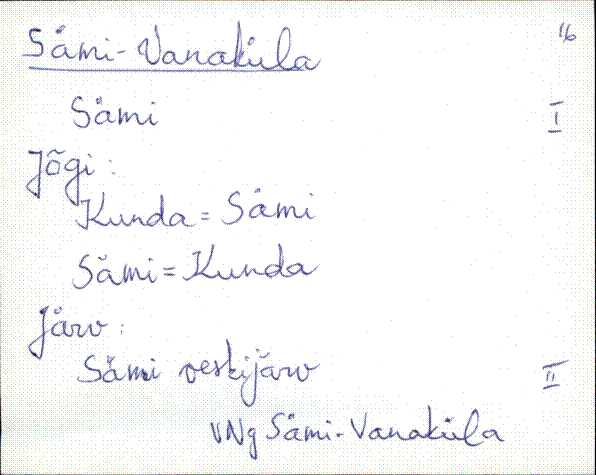 16
Sämi-Vanaküla
Sämi I
Jõgi:
Kunda = Sämi
Sämi = Kunda
Järv:
Sämi veskijärv II
VNg Sämi-Vanaküla